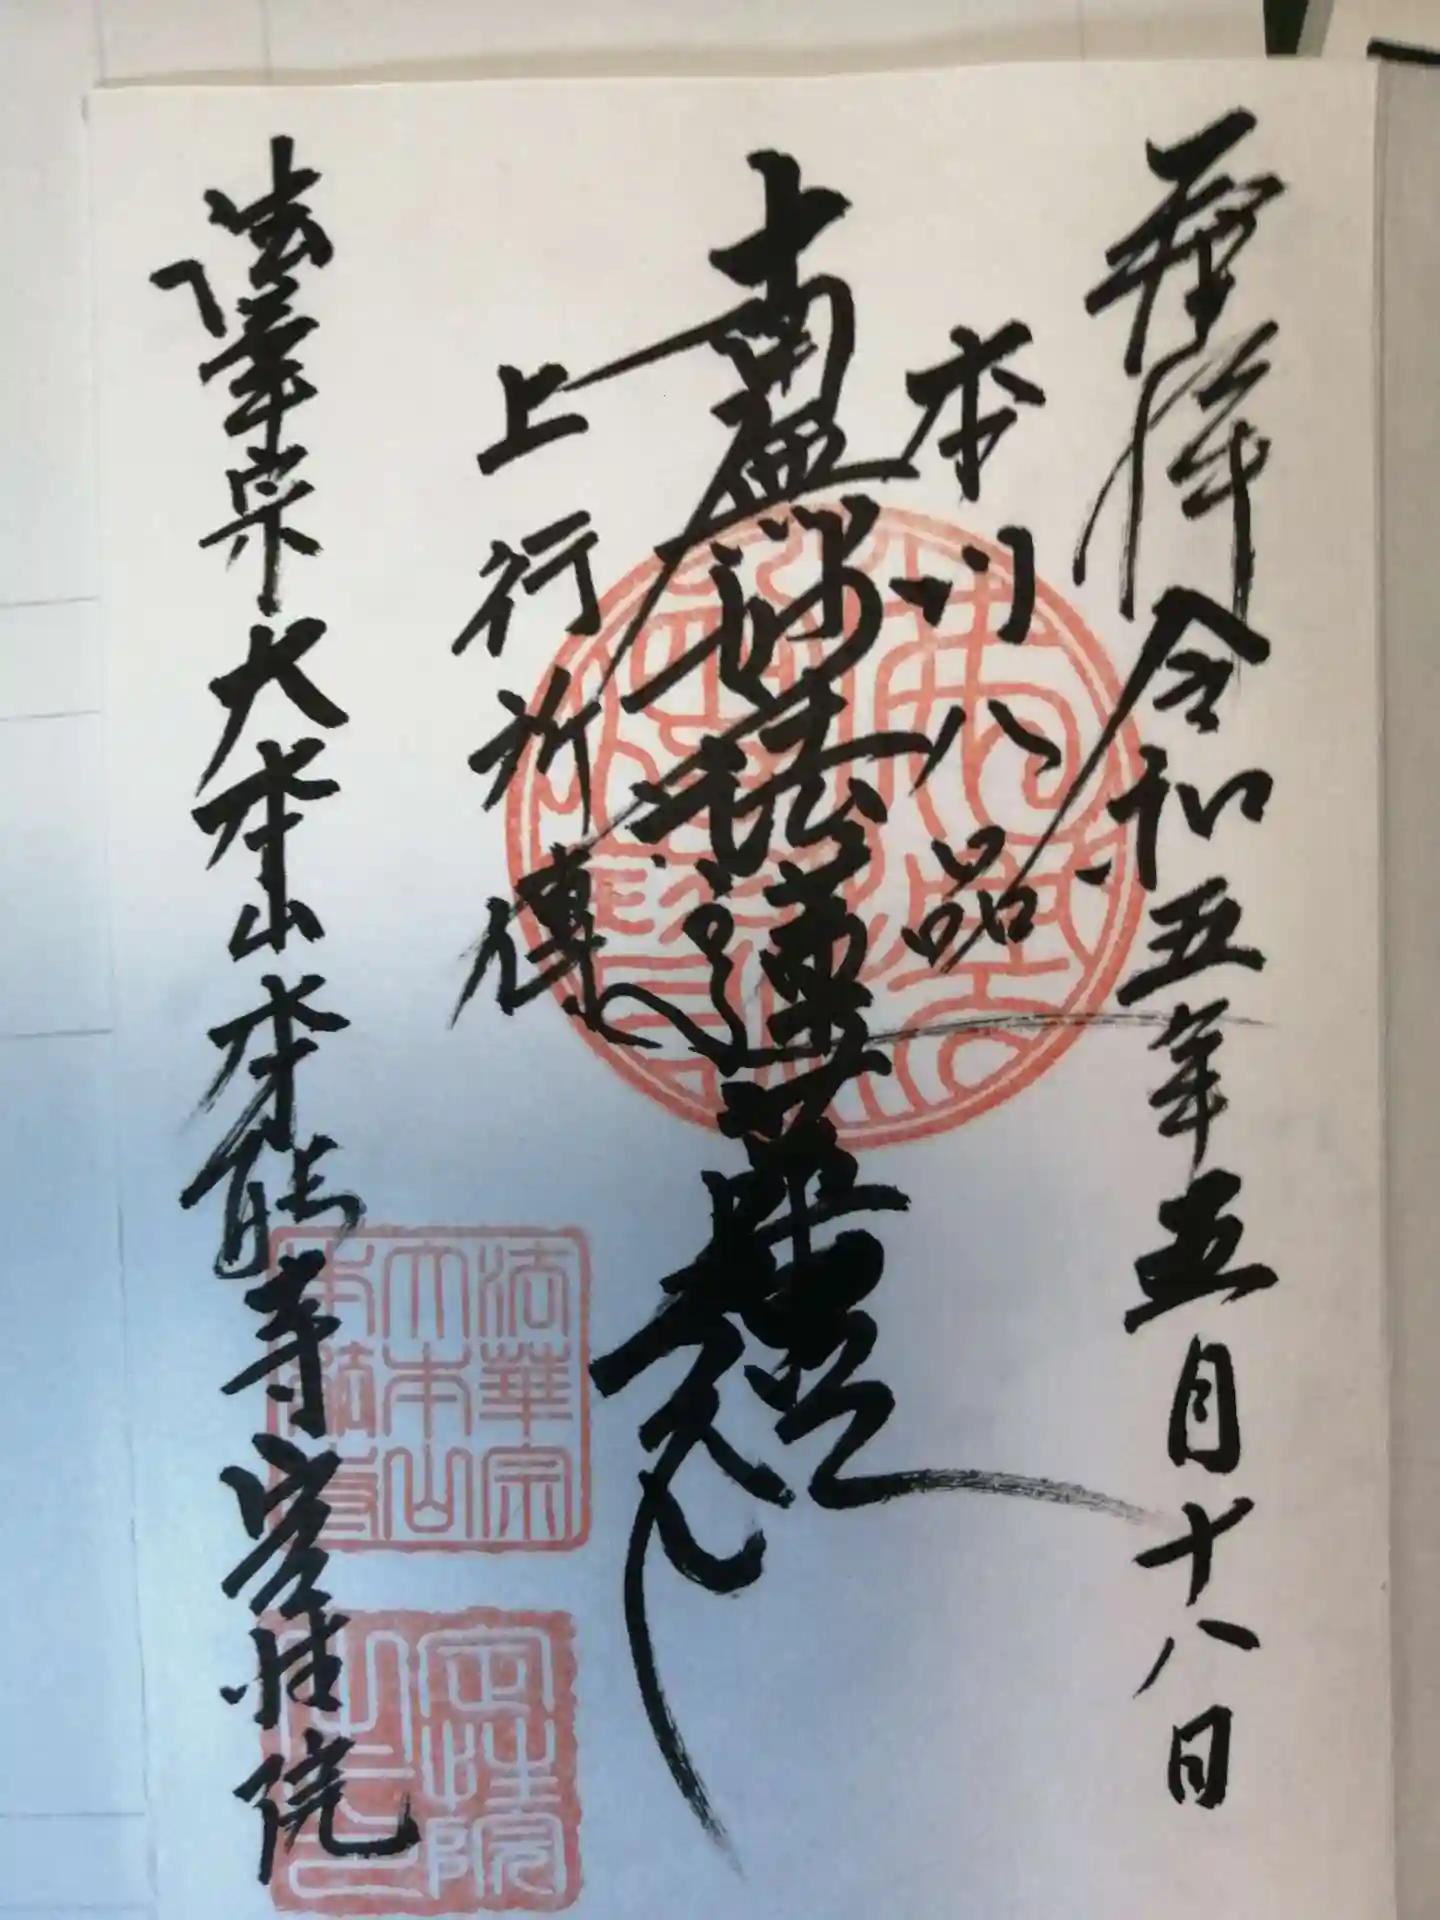 令和五年五月十八日
本門八品
南無妙法蓮華經
上行所傳
法華宗大本山本能寺定性院
法華宗
大本山
本能寺
定性院
之印